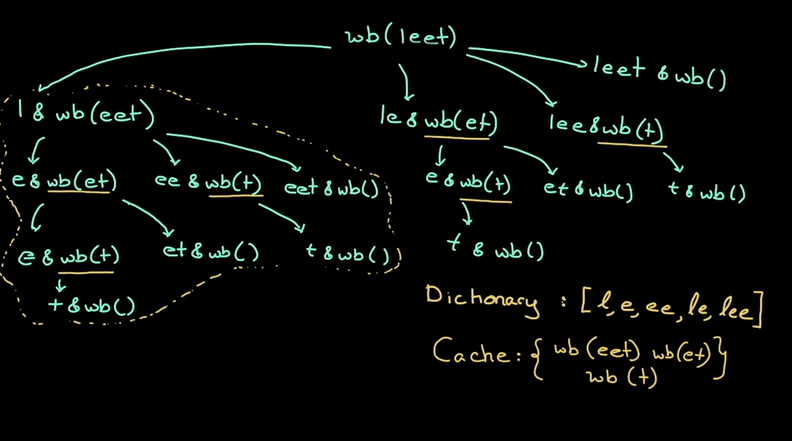 wb(leet)
leet & wb()
l & wb(eet)
le & wb(et)
lee & wb(t)
e & wb(et)
ee & wb(t)
eet & wb()
e & wb(t)
et & wb()
t & wb()
e & wb(t)
et & wb()
t & wb()
t & wb()
t & wb()
Dichonary : [l, e, ee, le, lee]
Cache : { wb(eet) wb(et) }
wb(t)